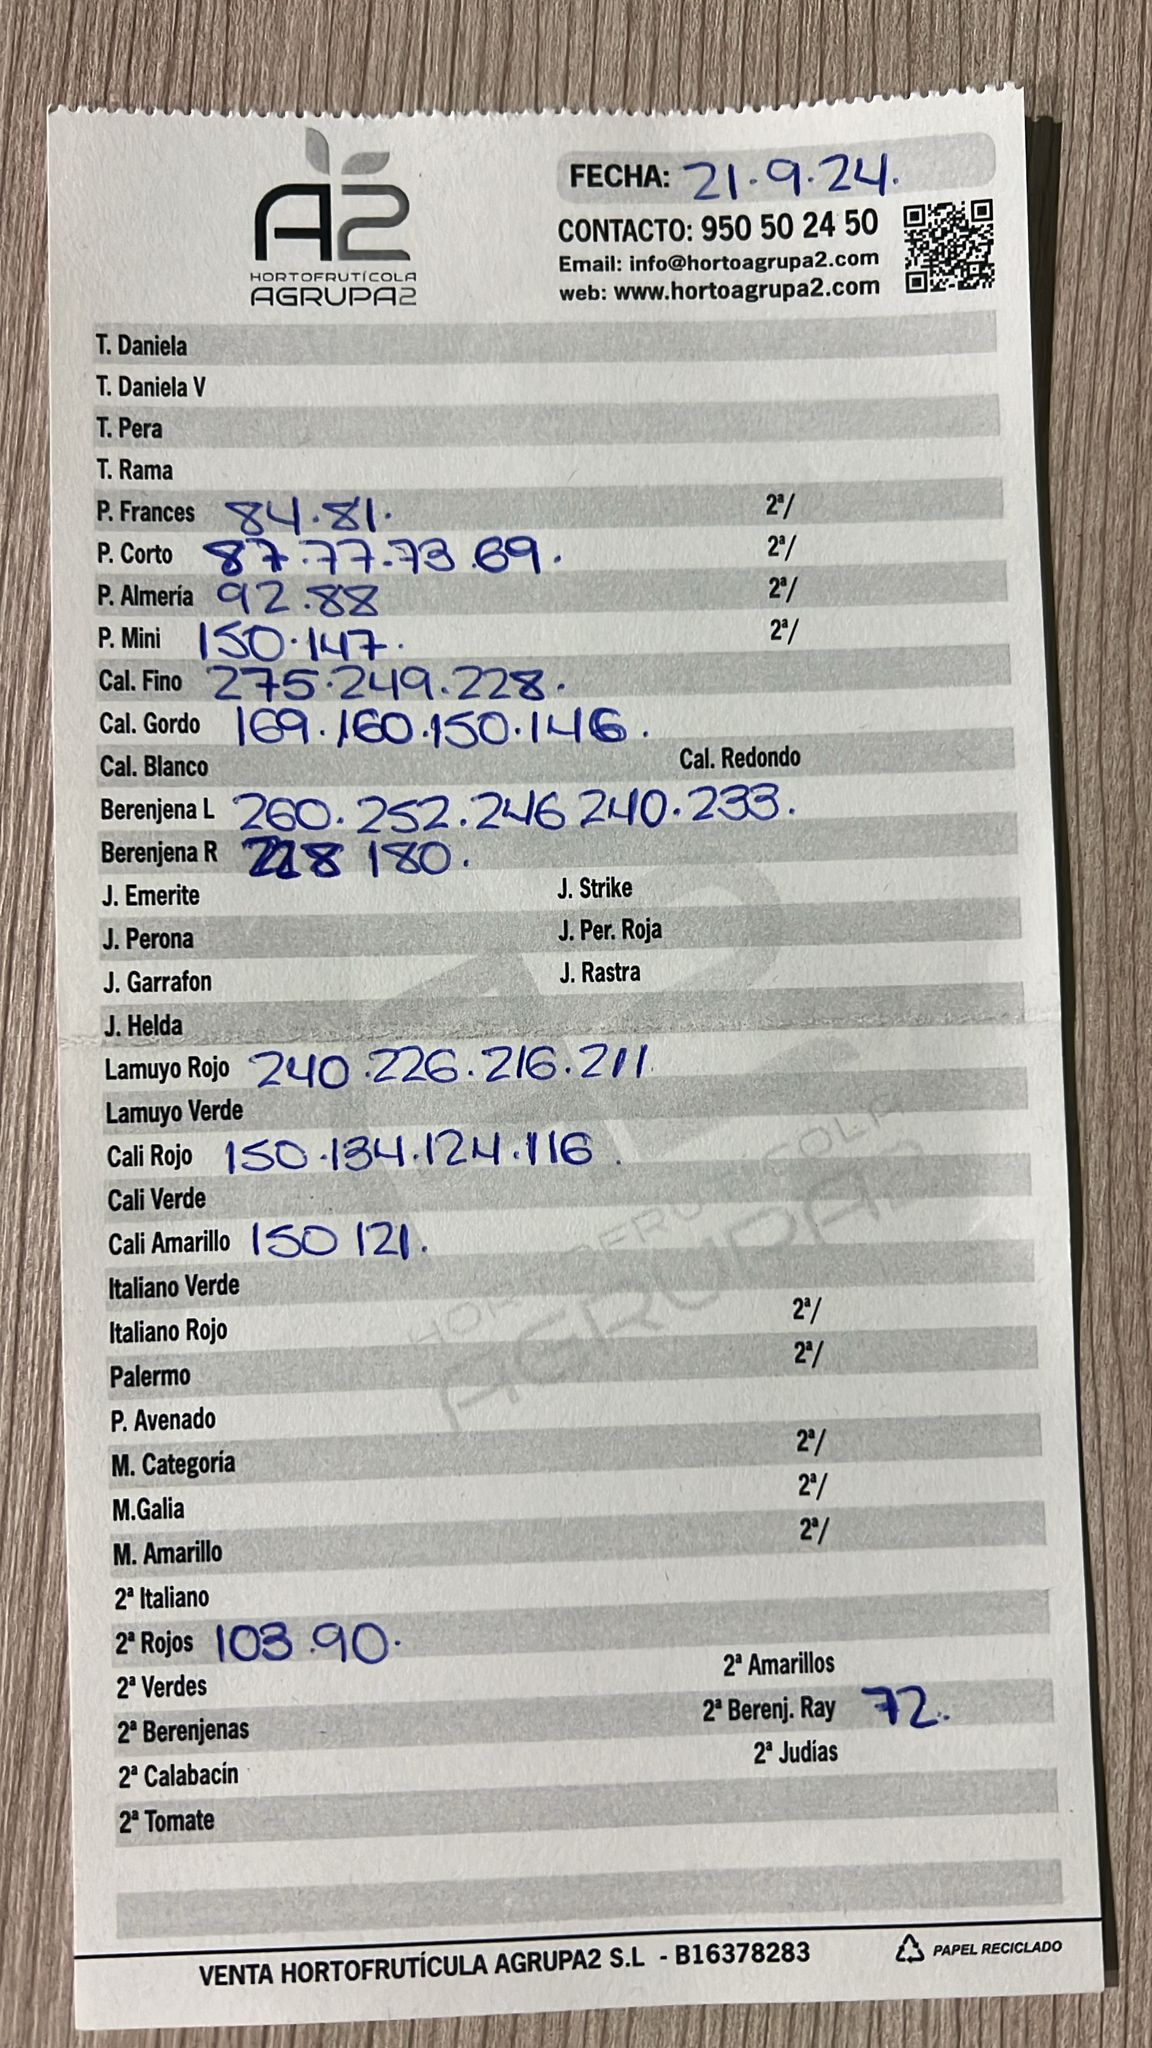 A2
HORTOFRUTÍCOLA
AGRUPA2
FECHA: 21.9.24.
CONTACTO: 950 50 24 50
Email: info@hortoagrupa2.com
web: www.hortoagrupa2.com
T. Daniela
T. Daniela V
T. Pera
T. Rama
P. Frances 84.81. 2ª/
P. Corto 87.77.73.69. 2ª/
P. Almería 92.88 2ª/
P. Mini 150.147. 2ª/
Cal. Fino 275.249.228.
Cal. Gordo 169.160.150.146.
Cal. Blanco Cal. Redondo
Berenjena L 260.252.246 240.233.
Berenjena R 228 180.
J. Emerite J. Strike
J. Perona J. Per. Roja
J. Garrafon J. Rastra
J. Helda
Lamuyo Rojo 240.226.216.211
Lamuyo Verde
Cali Rojo 150.134.124.116.
Cali Verde
Cali Amarillo 150 121.
Italiano Verde
Italiano Rojo 2ª/
Palermo 2ª/
P. Avenado
M. Categoría 2ª/
M.Galia 2ª/
M. Amarillo 2ª/
2ª Italiano
2ª Rojos 103.90.
2ª Verdes 2ª Amarillos
2ª Berenjenas 2ª Berenj. Ray 72.
2ª Calabacín 2ª Judías
2ª Tomate
HORTOFRUTÍCOLA
AGRUPA2
VENTA HORTOFRUTÍCULA AGRUPA2 S.L - B16378283
PAPEL RECICLADO